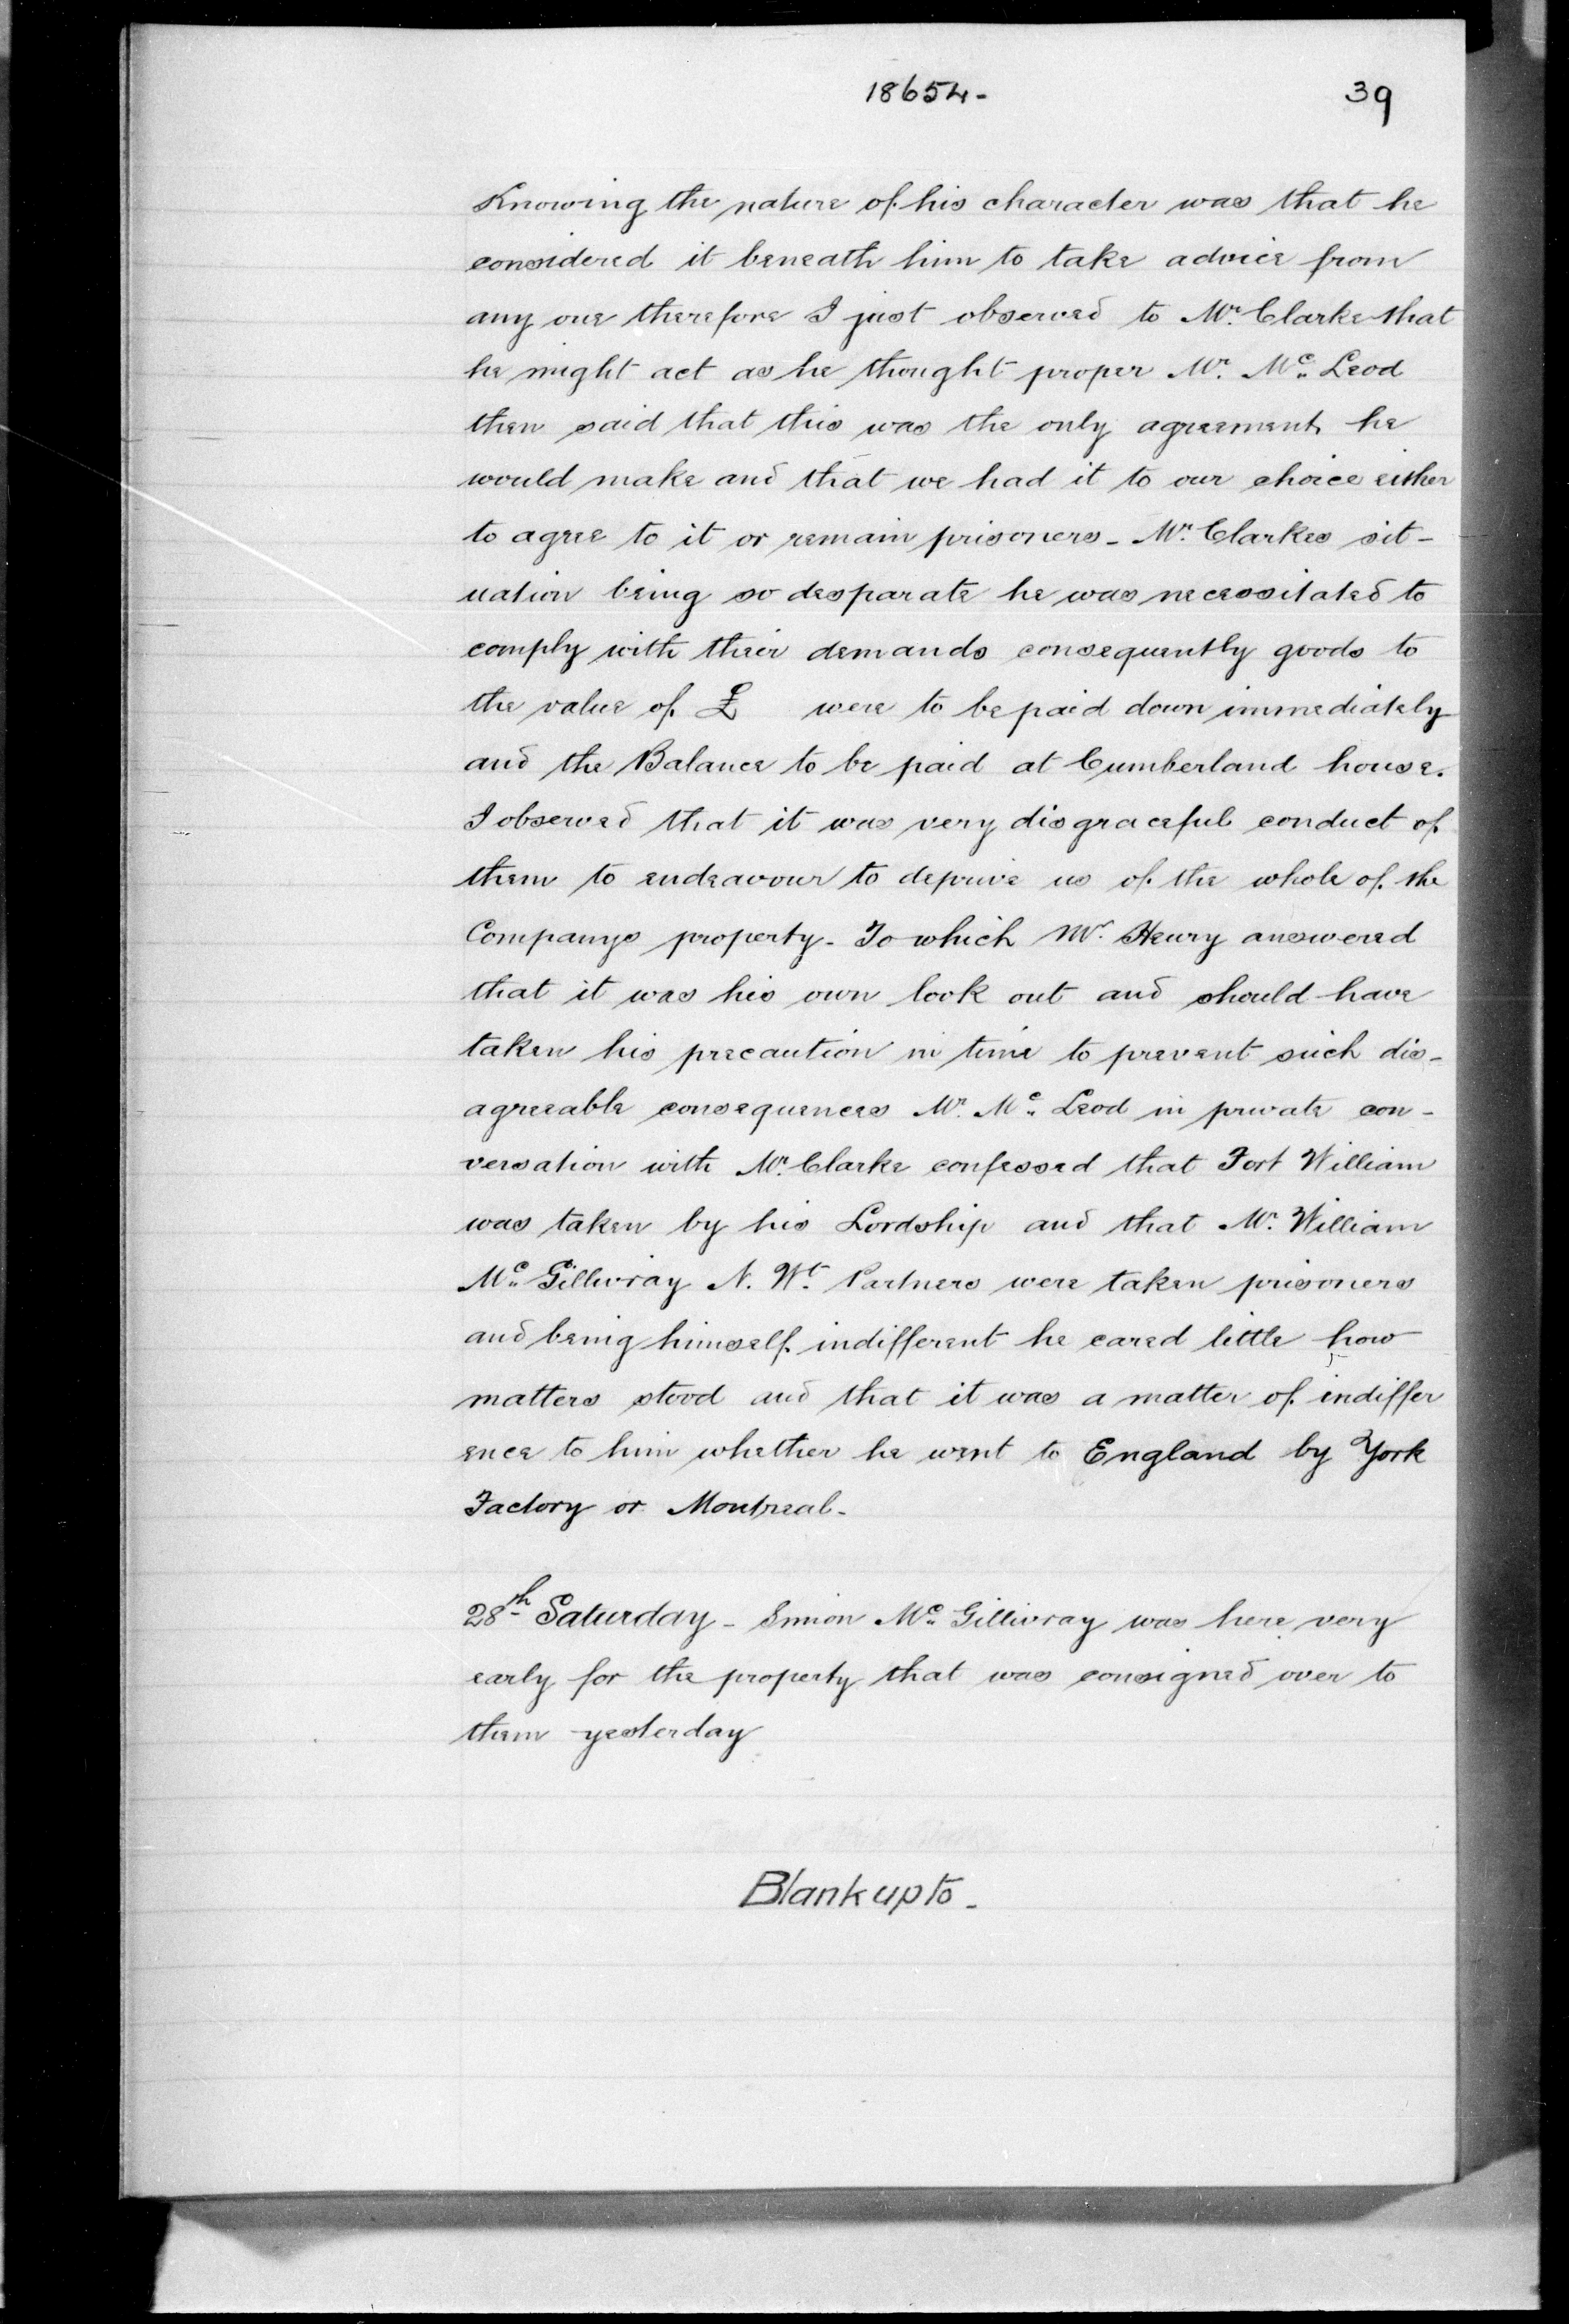 18654-
39
Knowing the nature of his character was that he
considered it beneath him to take advice from
any one therefore I just observed to Mr. Clarke that
he might act as he thought proper Mr. Mc. Leod
then said that this was the only agreement he
would make and that we had it to our choice either
to agree to it or remain prisoners - Mr. Clarkes sit-
uation being so desparate he was necessitated to
comply with their demands consequently goods to
the value of £ were to be paid down immediately
and the Balance to be paid at Cumberland house.
I observed that it was very disgraceful conduct of
them to endeavour to deprive us of the whole of the
Companys property - To which Mr. Henry answered
that it was his own look out and should have
taken his precaution in time to prevent such dis-
agreeable consequences Mr. Mc. Leod in private con-
versation with Mr. Clarke confessed that Fort William
was taken by his Lordship and that Mr. William
Mc. Gillivray N. Wt. Partners were taken prisoners
and being himself indifferent he cared little how
matters stood and that it was a matter of indiffer
ence to him whether he went to England by York
Factory or Montreal -
28th Saturday - Simon Mc. Gillivray was here very
early for the property that was consigned over to
them yesterday
Blank up to -